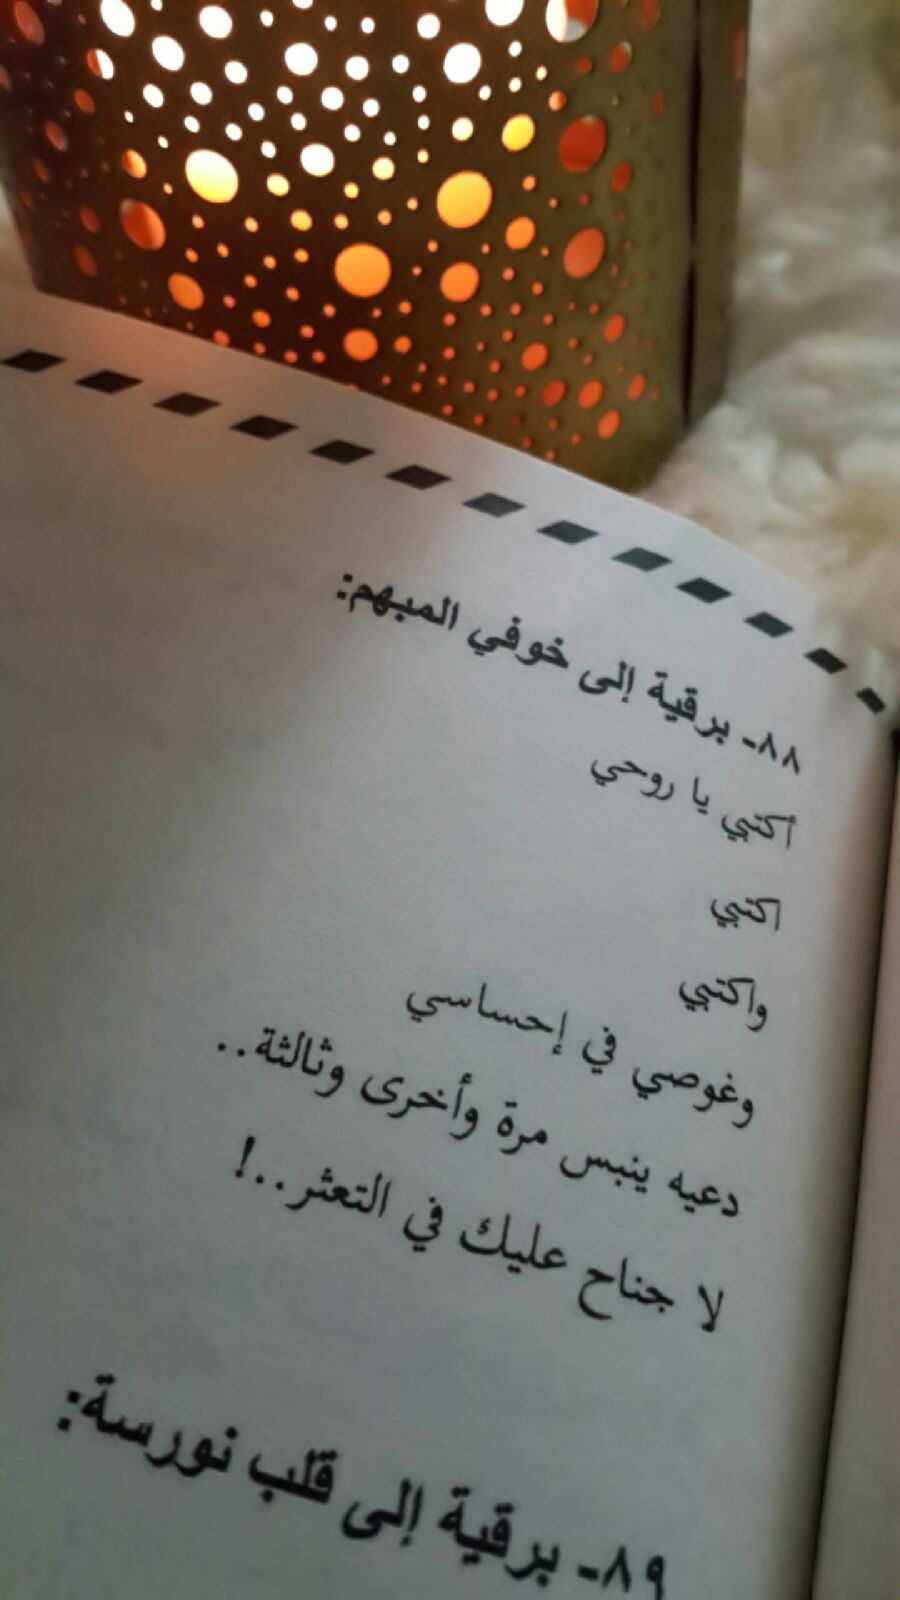 ٨٨- برقية إلى خوفي المبهم:
أكتبي يا روحي
اكتبي
واكتبي
وغوصي في إحساسي
دعيه ينبس مرة وأخرى وثالثة..
لا جناح عليك في التعثر..!
٨٩- برقية إلى قلب نورسة: